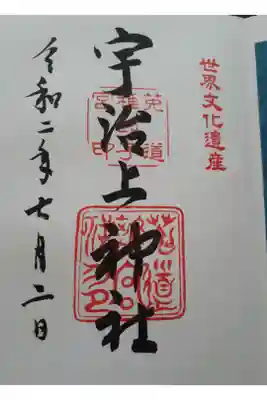 世界文化遺産
宇治上神社
令和二年七月二日